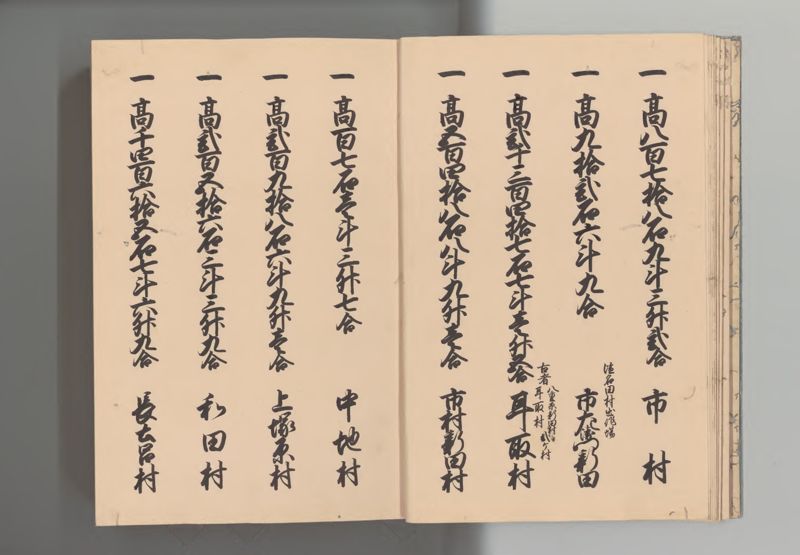 一 高八百七拾八石九斗三升弐合 市村
一 高九拾弐石六斗九合 市左衛門新田
一 高弐千三百四拾七石七斗壱升五合 耳取村
古者耳取村
一 高五百四拾八石八斗九升壱合 市村新田村
一 高百七石壱斗三升七合 中地村
一 高弐百九拾八石六斗九升壱合 上塚原村
一 高弐百五拾六石三斗三升九合 和田村
一 高千四百六拾五石七斗六升九合 長土呂村